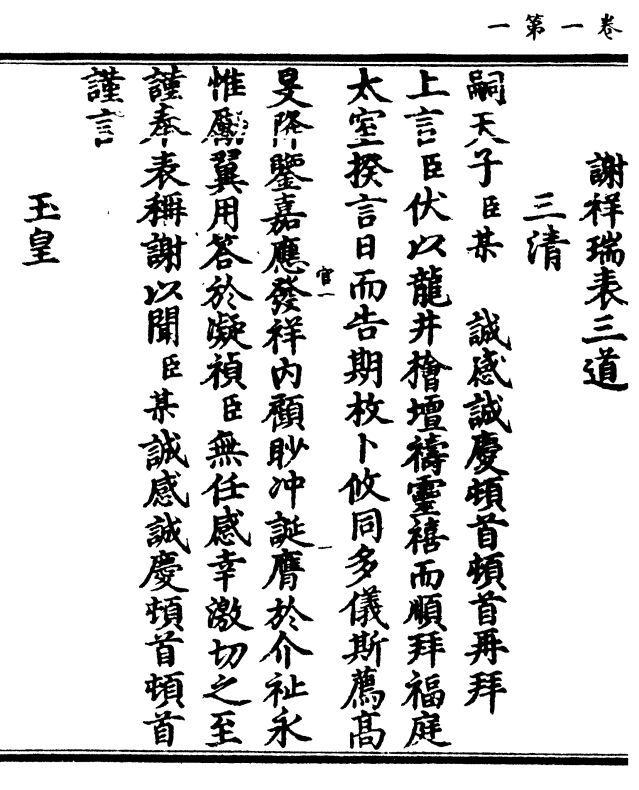 卷一第一
謝祥瑞表三道
三清
嗣天子臣某 誠感誠慶頓首頓首再拜
上言臣伏以龍井檜壇禱靈禧而順拜福庭
太室揆言日而告期枚卜攸同多儀斯薦高
旻降鑒嘉應發祥內顧眇冲誕膺於介祉永
官一
惟勵翼用答於凝禎臣無任感幸激切之至
謹奉表稱謝以聞臣某誠感誠慶頓首頓首
謹言
玉皇